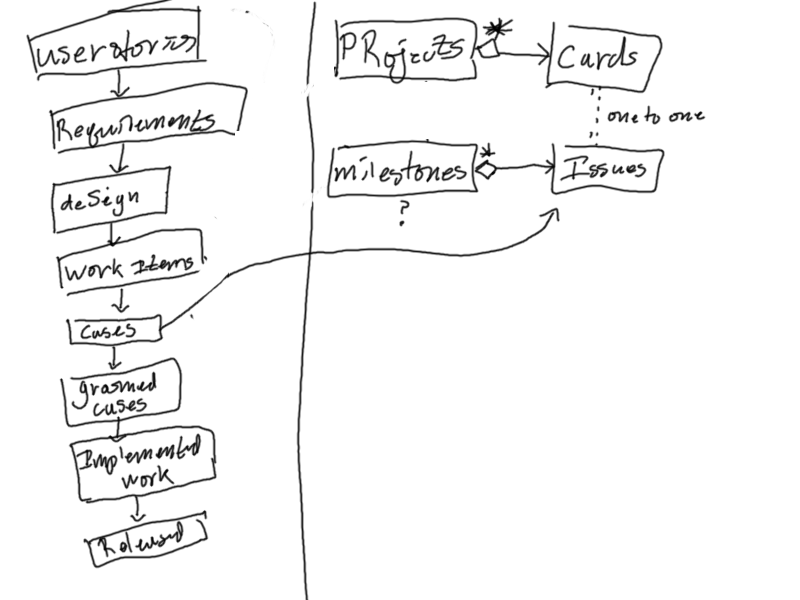 userstories
Requirements
deSign
Work Items
Cases
grasmed
cases
Implemented
work
Released
PRojects
*
Cards
one to one
milestones
*
Issues
?